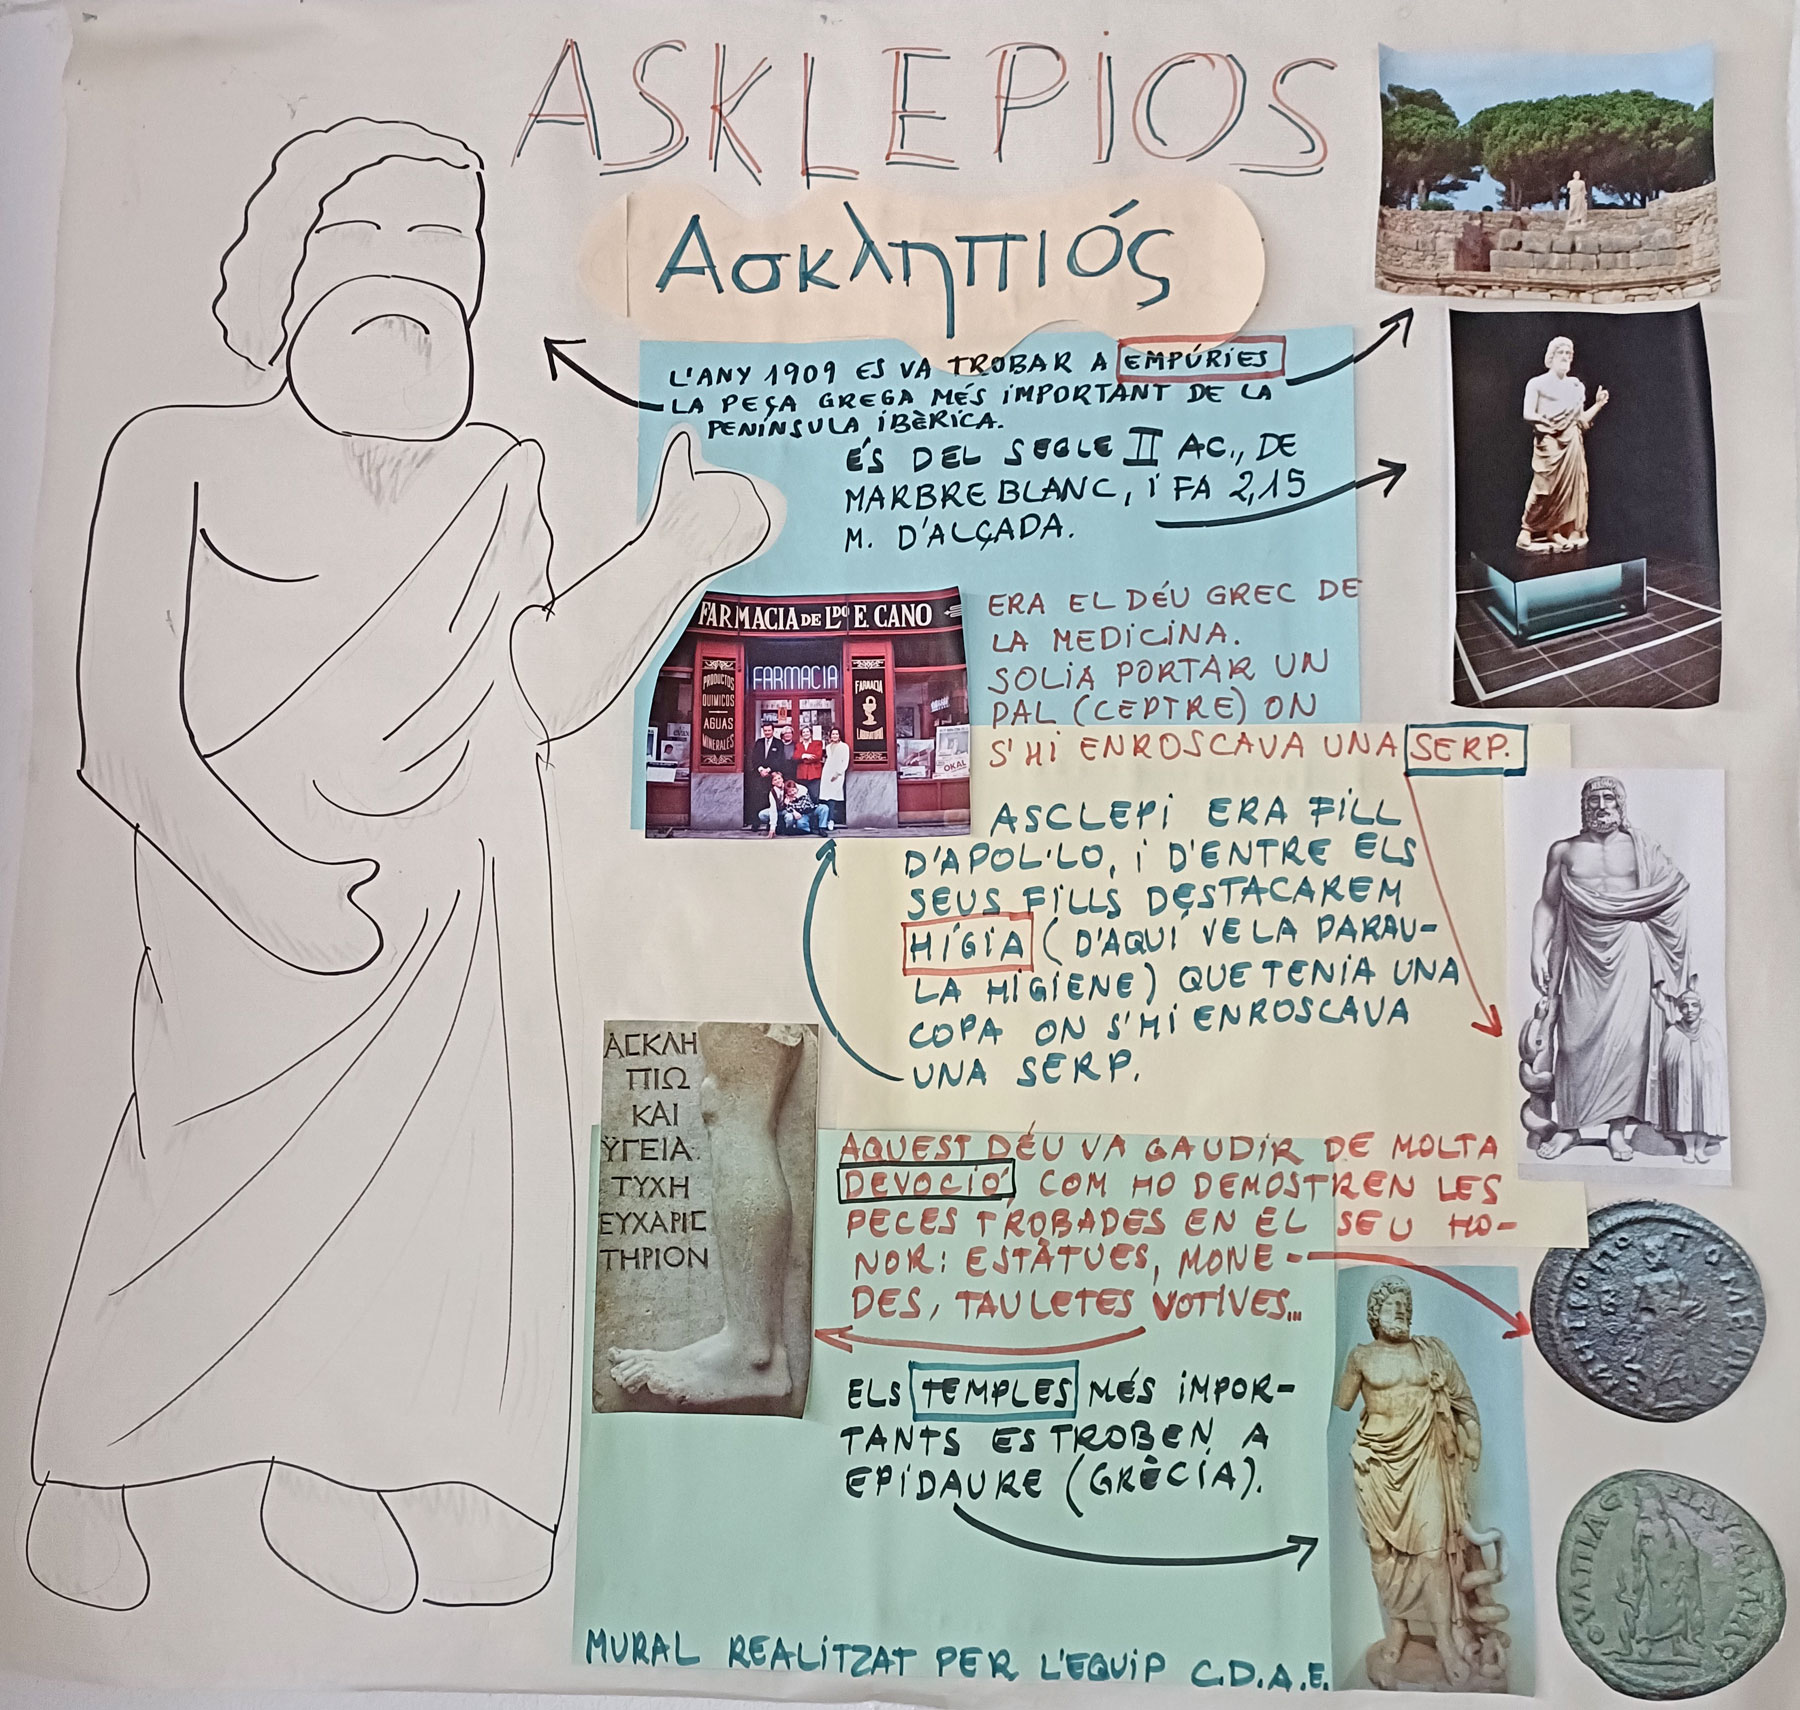 ASKLEPIOS
Ασκληπιός
L'ANY 1909 ES VA TROBAR A EMPÚRIES
LA PEÇA GREGA MÉS IMPORTANT DE LA
PENÍNSULA IBÈRICA.
ÉS DEL SEGLE II AC., DE
MARBRE BLANC, I FA 2,15
M. D'ALÇADA.
FARMACIA DE LDO E. CANO
FARMACIA
PRODUCTOS
QUIMICOS
AGUAS
MINERALES
FARMACIA
LABORATORIO
OKAL
ERA EL DÉU GREC DE
LA MEDICINA.
SOLIA PORTAR UN
PAL (CEPTRE) ON
S'HI ENROSCAVA UNA SERP.
ASCLEPI ERA FILL
D'APOL·LO, I D'ENTRE ELS
SEUS FILLS DESTACAREM
HÍGIA (D'AQUÍ VE LA PARAU-
LA HIGIENE) QUE TENIA UNA
COPA ON S'HI ENROSCAVA
UNA SERP.
ΑΣΚΛΗ
ΠΙΩ
ΚΑΙ
ΫΓΕΙΑ
ΤΥΧΗ
ΕΥΧΑΡΙΣ
ΤΗΡΙΟΝ
AQUEST DÉU VA GAUDIR DE MOLTA
DEVOCIÓ, COM HO DEMOSTREN LES
PECES TROBADES EN EL SEU HO-
NOR: ESTÀTUES, MONE-
DES, TAULETES VOTIVES...
ELS TEMPLES MÉS IMPOR-
TANTS ES TROBEN A
EPIDAURE (GRÈCIA).
MURAL REALITZAT PER L'EQUIP C.D.A.E.